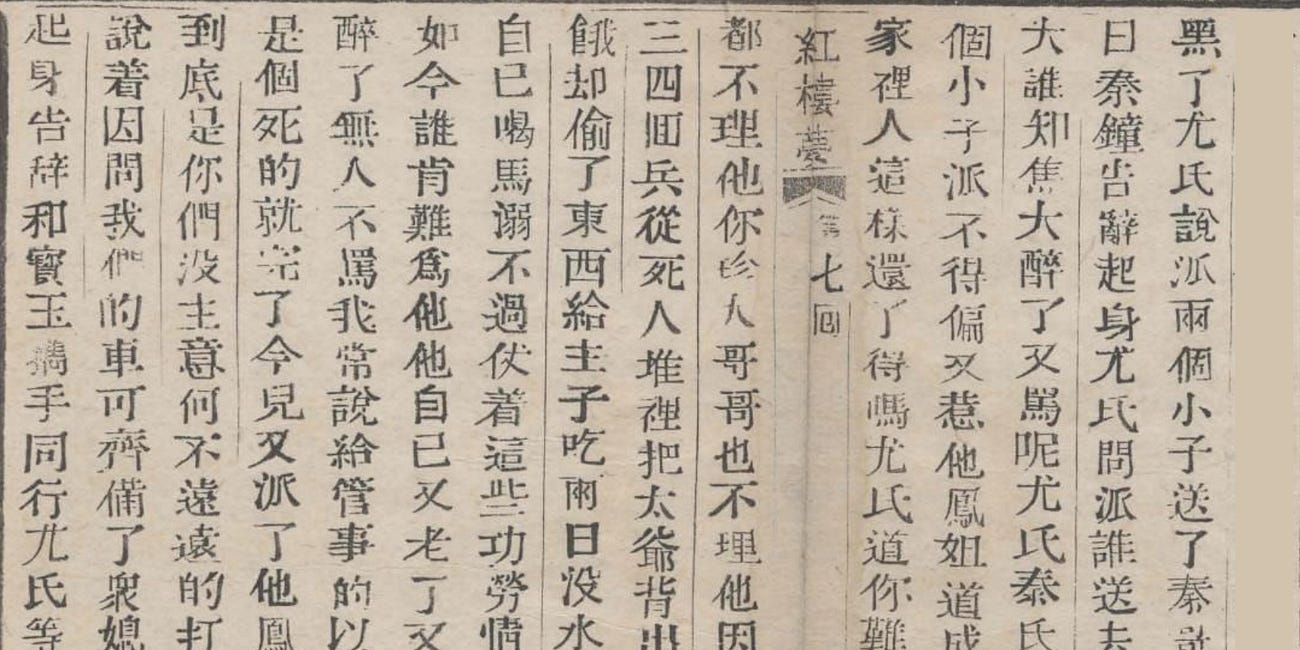 黑了尤氏說派兩個小子送了秦
日秦鐘告辭起身尤氏問派誰送去
大誰知焦大醉了又罵呢尤氏秦氏
個小子派不得偏又惹他鳳姐道成
家裡人這樣還了得嗎尤氏道你難
紅樓夢 第七回
都不理他你珍大哥哥也不理他因
三四回兵從死人堆裡把太爺背出
餓却偷了東西給主子吃兩日没水
自已喝馬溺不過伏着這些功勞情
如今誰肯難爲他他自已又老了又
醉了無人不罵我常說給管事的以
是個死的就完了今兒又派了他鳳
到底是你們没主意何不遠遠的打
說着因問我們的車可齊備了衆媳
起身告辭和寳玉携手同行尤氏等